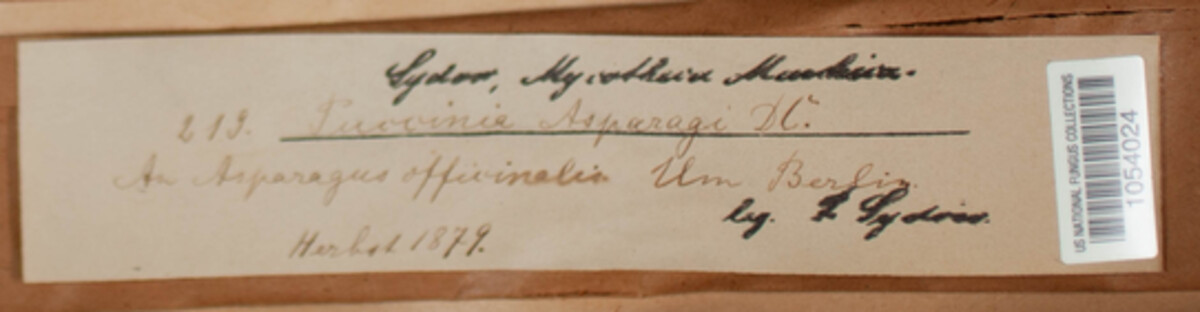 Sydow, Mycotheca Marchica.
213. Puccinia Asparagi DC.
An Asparagus officinalis Um Berlin
leg. P Sydow.
Herbst 1879.
US NATIONAL FUNGUS COLLECTIONS
1054024